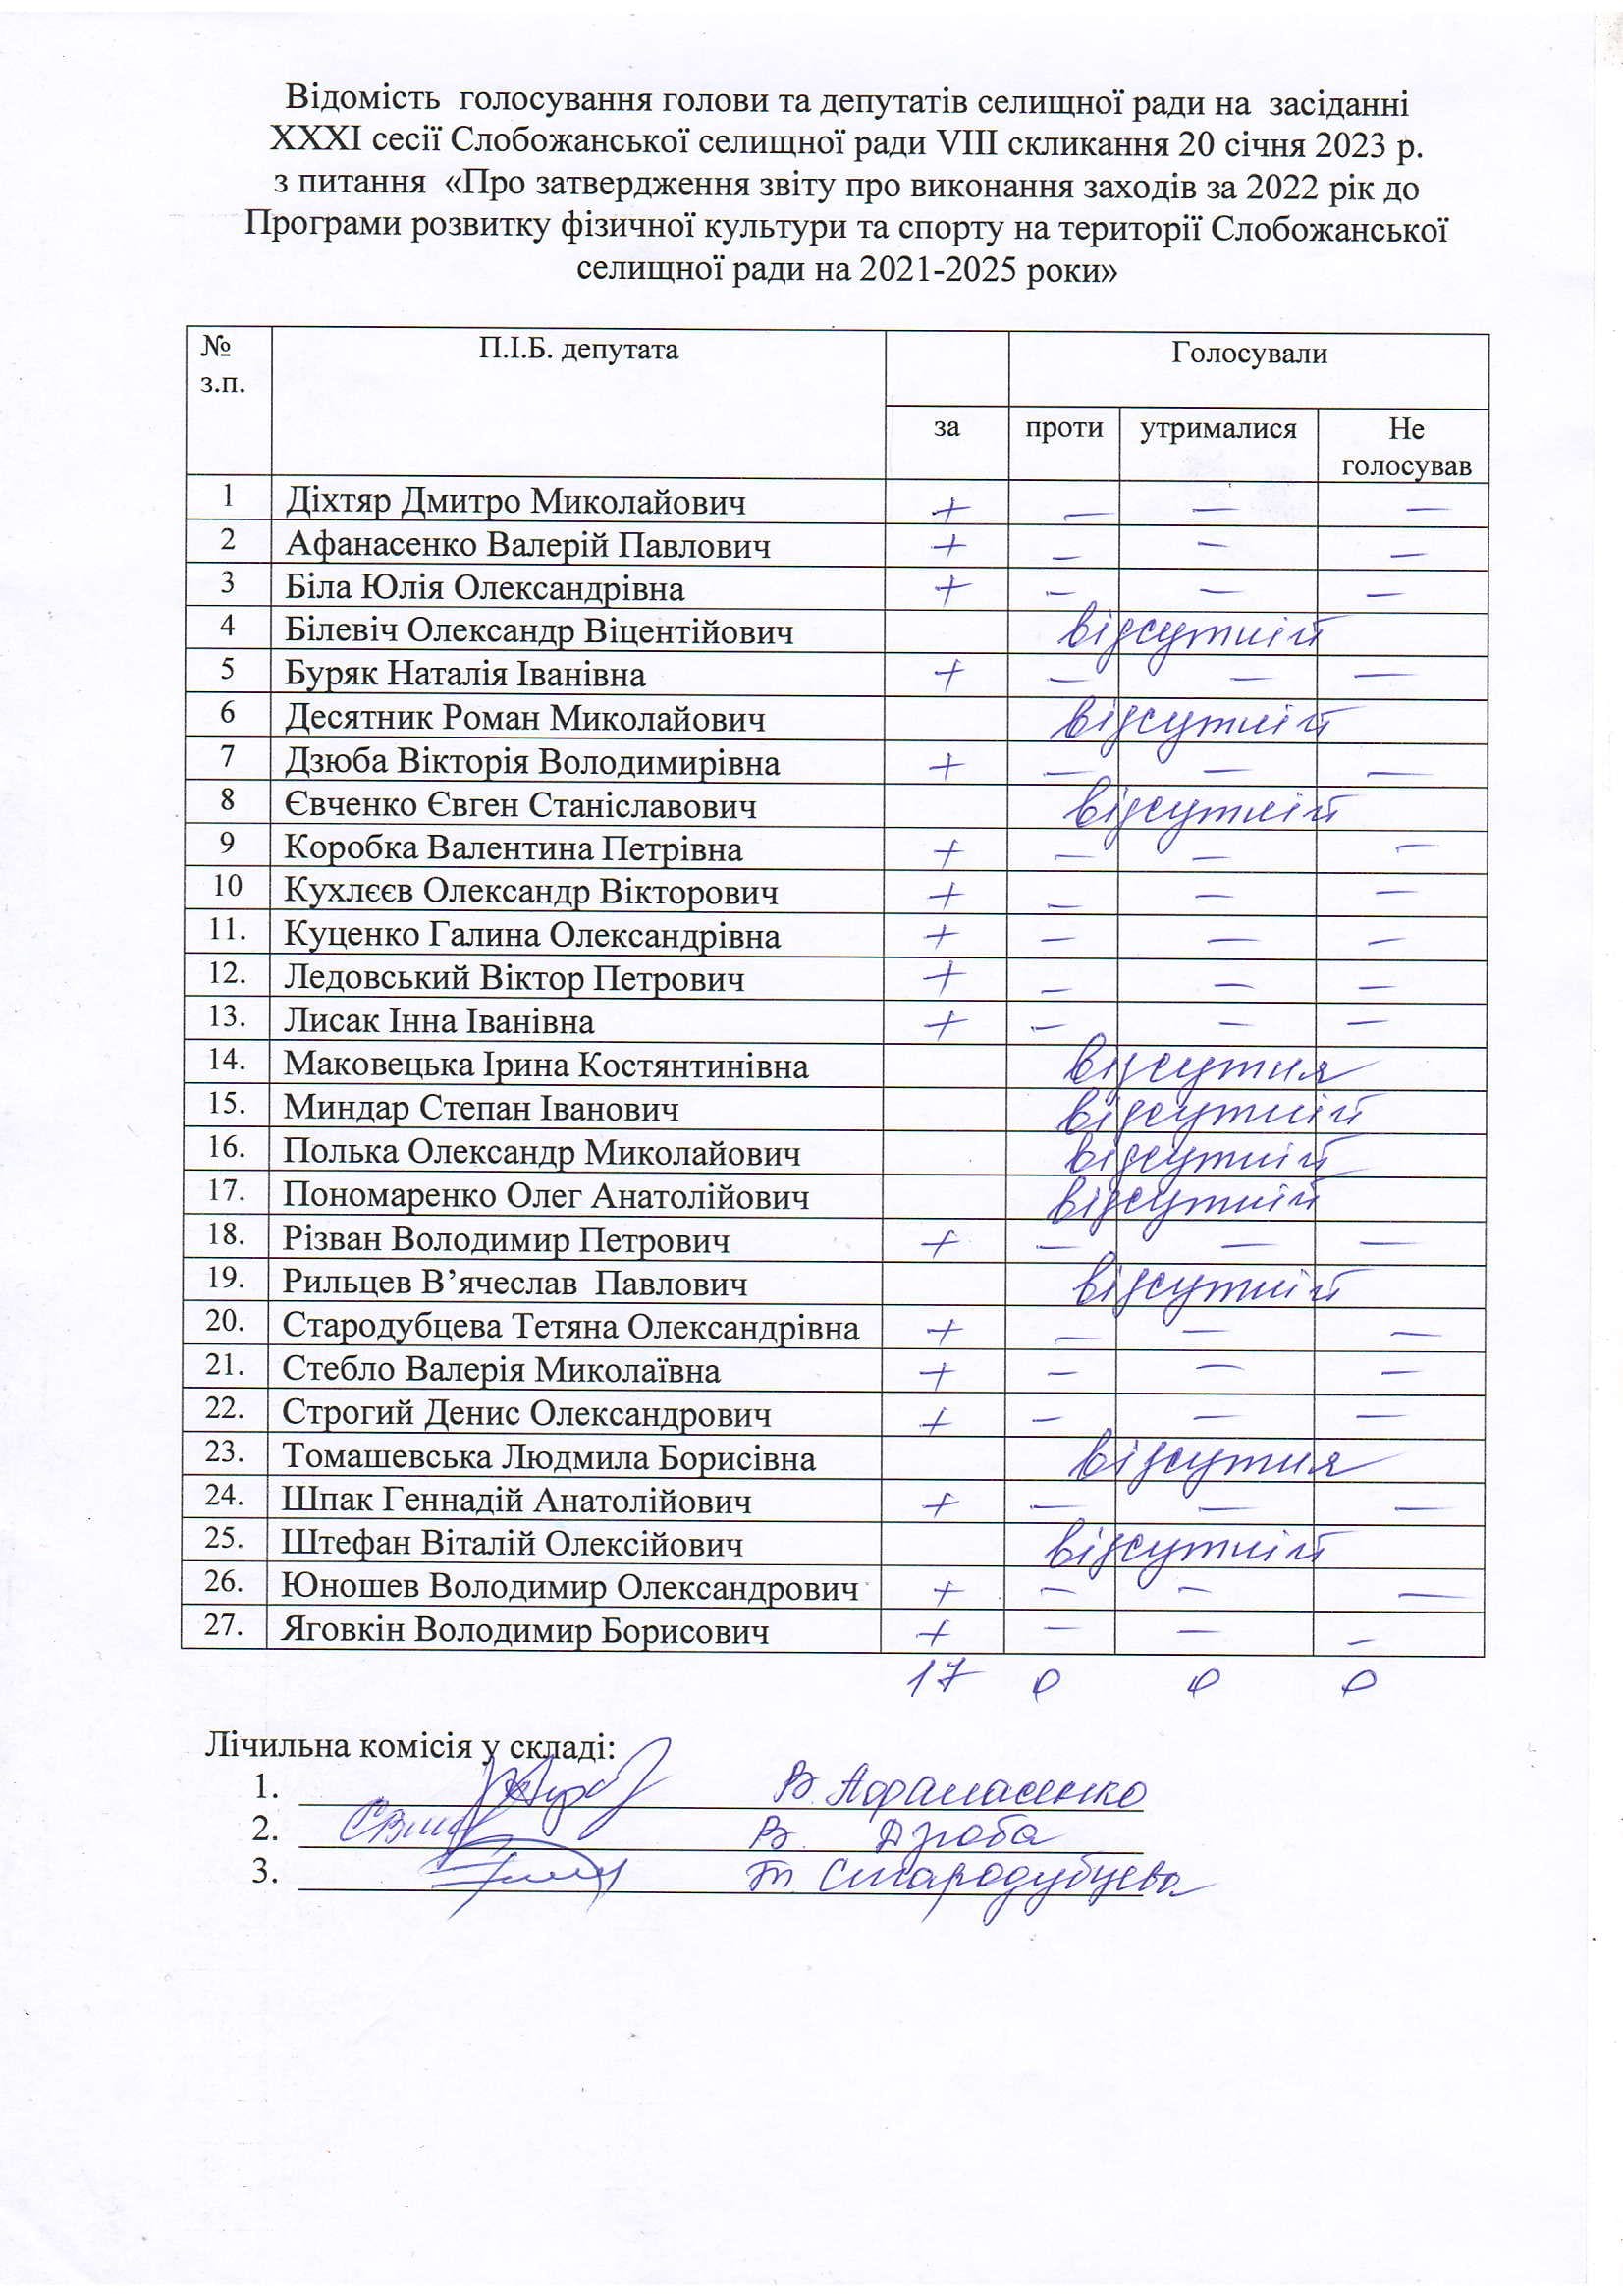 Відомість голосування голови та депутатів селищної ради на засіданні
XXXI сесії Слобожанської селищної ради VIII скликання 20 січня 2023 р.
з питання «Про затвердження звіту про виконання заходів за 2022 рік до
Програми розвитку фізичної культури та спорту на території Слобожанської
селищної ради на 2021-2025 роки»
№ з.п. П.І.Б. депутата Голосували
за проти утрималися Не голосував
1 Діхтяр Дмитро Миколайович + — — —
2 Афанасенко Валерій Павлович + — — —
3 Біла Юлія Олександрівна + — — —
4 Білевіч Олександр Віцентійович відсутній
5 Буряк Наталія Іванівна + — — —
6 Десятник Роман Миколайович відсутній
7 Дзюба Вікторія Володимирівна + — — —
8 Євченко Євген Станіславович відсутній
9 Коробка Валентина Петрівна + — — —
10 Кухлєєв Олександр Вікторович + — — —
11. Куценко Галина Олександрівна + — — —
12. Ледовський Віктор Петрович + — — —
13. Лисак Інна Іванівна + — — —
14. Маковецька Ірина Костянтинівна відсутня
15. Миндар Степан Іванович відсутній
16. Полька Олександр Миколайович відсутній
17. Пономаренко Олег Анатолійович відсутній
18. Різван Володимир Петрович + — — —
19. Рильцев В’ячеслав Павлович відсутній
20. Стародубцева Тетяна Олександрівна + — — —
21. Стебло Валерія Миколаївна + — — —
22. Строгий Денис Олександрович + — — —
23. Томашевська Людмила Борисівна відсутня
24. Шпак Геннадій Анатолійович + — — —
25. Штефан Віталій Олексійович відсутній
26. Юношев Володимир Олександрович + — — —
27. Яговкін Володимир Борисович + — — —
17 0 0 0
Лічильна комісія у складі:
1. В. Афанасенко
2. В. Дзюба
3. Т. Стародубцева